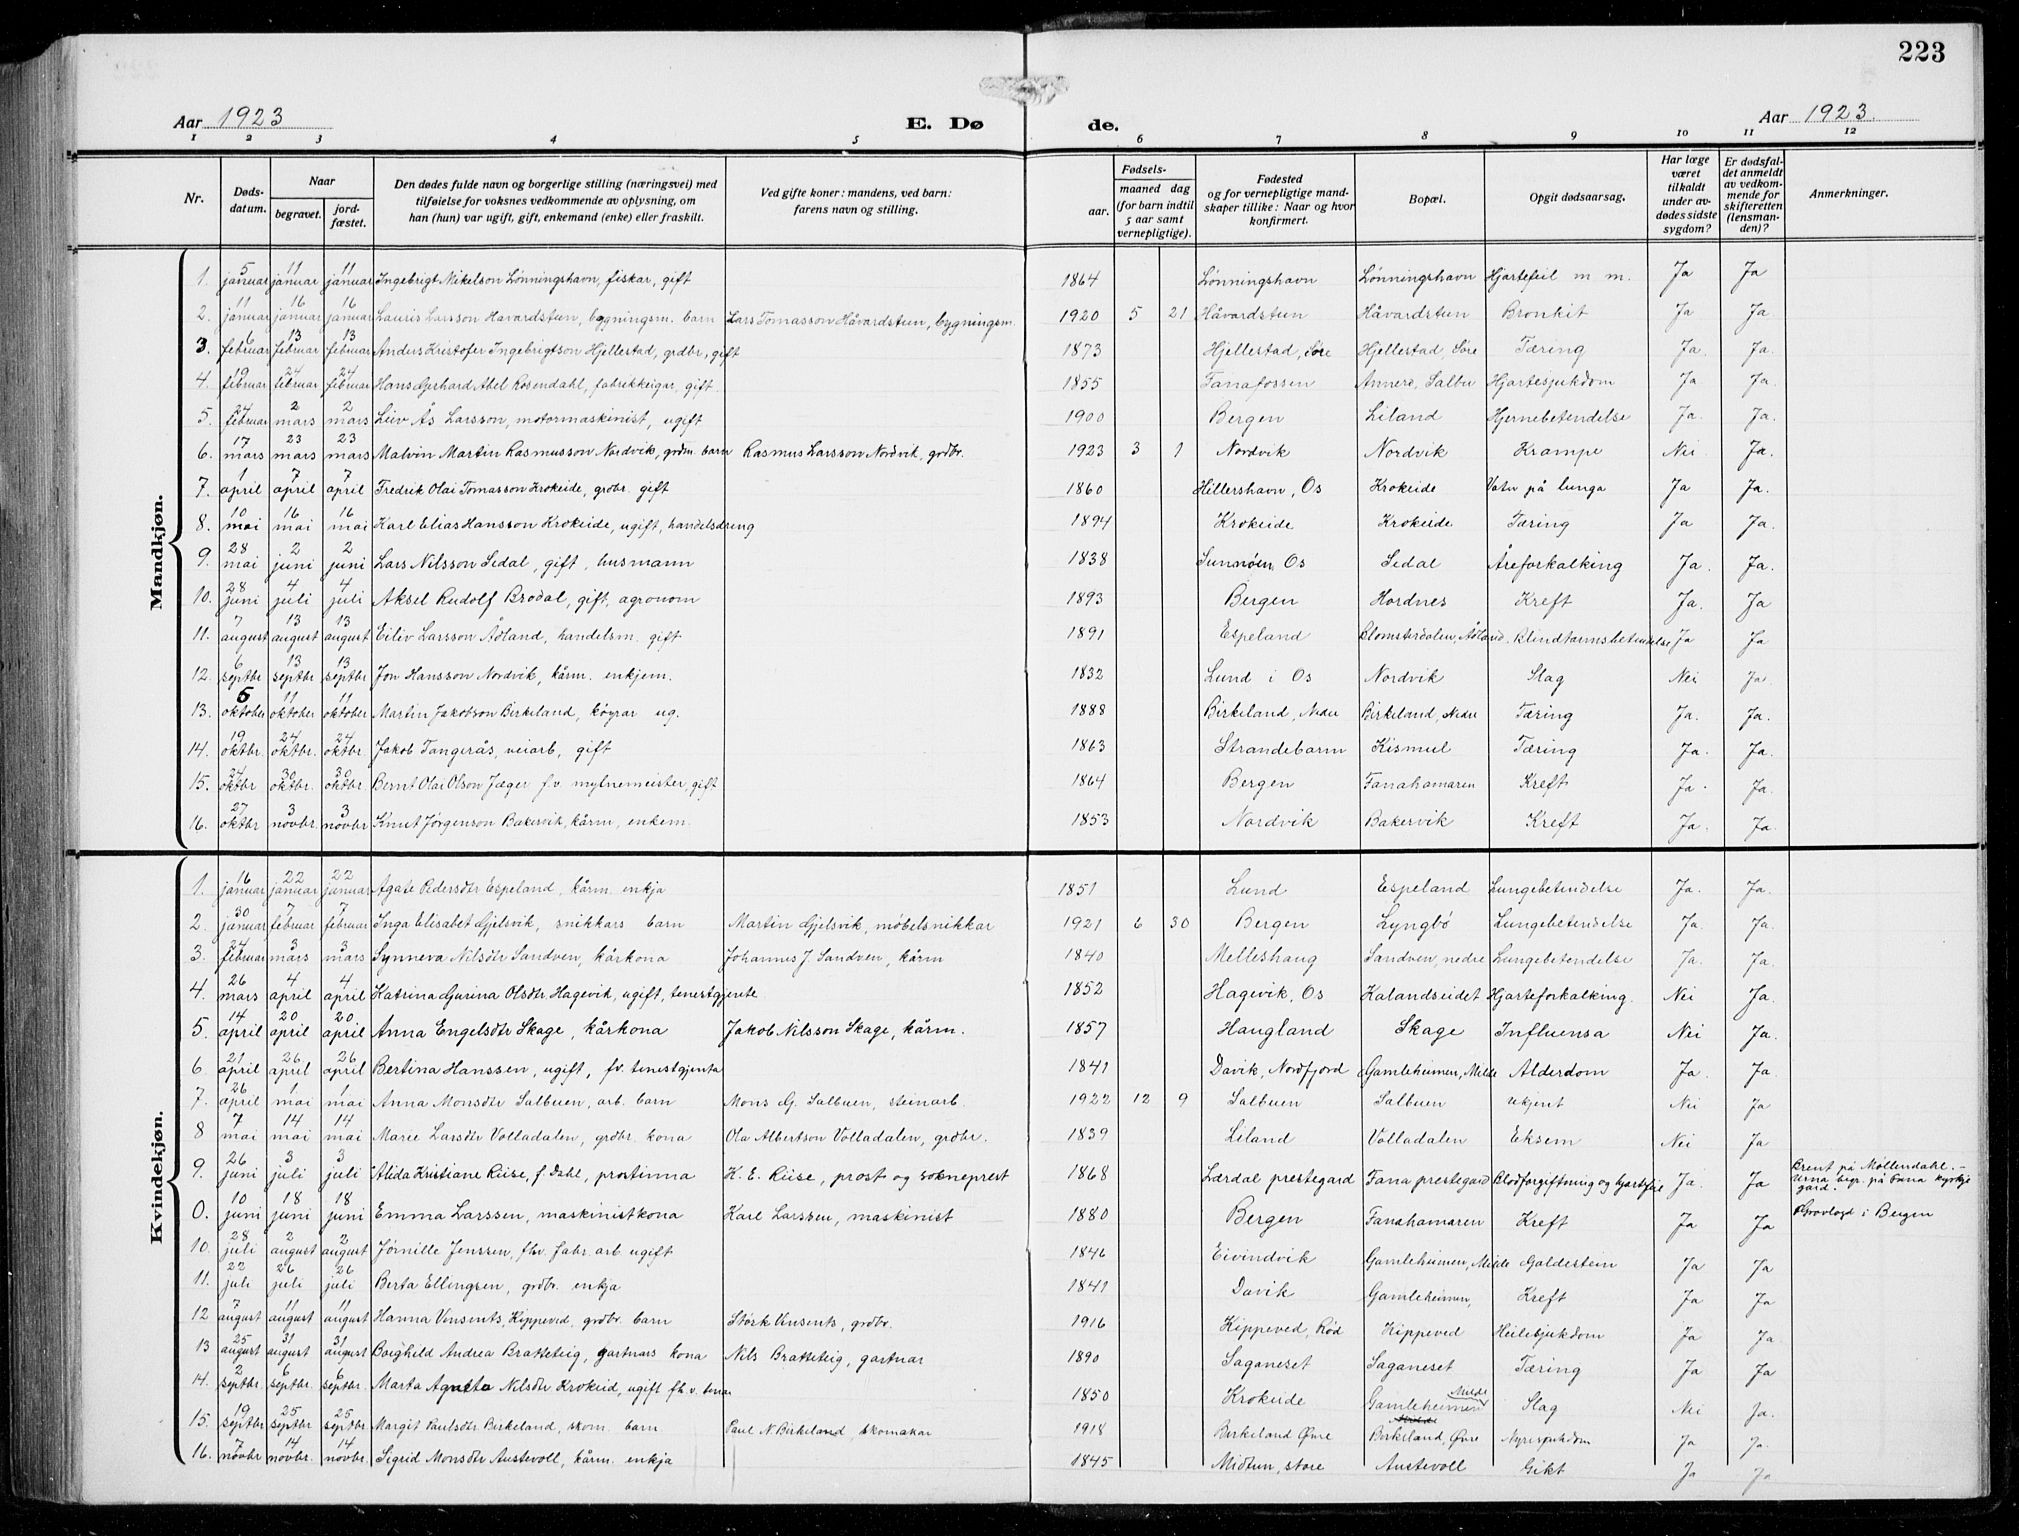 223
Aar 1923 E. Dø de. Aar 1923.
1 2 3 4 5 6 7 8 9 10 11 12
Nr. Døds-datum. Naar begravet. jord-fæstet. Den dødes fulde navn og borgerlige stilling (næringsvei) med tilføielse for voksnes vedkommende av oplysning, om han (hun) var ugift, gift, enkemand (enke) eller fraskilt. Ved gifte koner: mandens, ved barn: farens navn og stilling. Fødsels- aar. maaned dag (for barn indtil 5 aar samt vernepligtige). Fødested og for vernepligtige mandskaper tillike: Naar og hvor konfirmert. Bopæl. Opgit dødsaarsag. Har læge været tilkaldt under avdødes sidste sygdom? Er dødsfaldet anmeldt av vedkommende for skifteretten (lensmanden)? Anmerkninger.
Mandkjøn.
1. 5 januar 11 januar 11 januar Ingebrigt Nikelson Lønningshavn, fiskar, gift 1864 Lønningshavn Lønningshavn Hjartefeil m m. Ja Ja
2. 11 januar 16 januar 16 januar Lauris Larsson Havardstun, bygningsm. barn Lars Tomasson Håvardstun, bygningsm. 1920 5 21 Håvardstun Håvardstun Bronkit Ja Ja
3. 6 februar 13 februar 13 februar Anders Kristofer Ingebrigtson Hjellestad, grdbr, gift 1873 Hjellestad, Søre Hjellestad, Søre Tæring Ja. Ja.
4. 19 februar 24 februar 24 februar Hans Gerhard Abel Rosendahl, fabrikkeigar, gift. 1855 Fanafossen Annerø, Salbu Hjartesjukdom Ja Ja.
5. 24 februar 2 mars 2 mars Leiv Ås Larsson, motormaskinist, ugift 1900 Bergen Liland Hjernebetendelse Ja. Ja.
6. 17 mars 23 mars 23 mars Malvin Martin Rasmusson Nordvik, grdm. barn Rasmus Larsson Nordvik, grdbr. 1923 3 1 Nordvik Nordvik Krampe Nei Ja.
7. 1 april 7 april 7 april Fredrik Olai Tomasson Krokeide, grdbr. gift 1860 Hillershavn, Os Krokeide Vatn på lunga Ja Ja.
8. 10 mai 16 mai 16 mai Karl Elias Hansson Krokeide, ugift, handelsdreng 1894 Krokeide Krokeide Tæring Ja Ja.
9. 28 mai 2 juni 2 juni Lars Nilsson Sedal, gift, husmann 1838 Sunnøen, Os Sedal Åreforkalking Ja. Ja.
10. 28 juni 4 juli 4 juli Aksel Rudolf Brodal, gift, agronom 1893 Bergen Hordnes Kreft Ja. Ja
11. 7 august 13 august 13 august Eiliv Larsson Ådland, handelsm. gift 1891 Espeland Blomsterdalen, Ådland. Blindtarmsbetendelse Ja Ja
12. 6 septbr 13 septbr 13 septbr Jon Hansson Nordvik, kårm. enkjem. 1832 Lund i Os Nordvik Slag Nei Ja.
13. 5 oktober 11 oktober 11 oktober Martin Jakobson Birkeland, køyrar ug. 1888 Birkeland, Nedre Birkeland, Nedre Tæring Ja. Ja.
14. 19 oktbr. 24 oktbr. 24 oktbr. Jakob Tangerås, veiarb, gift 1863 Strandebarm Kismul Tæring Ja. Ja.
15. 24 oktbr 30 oktbr. 30 oktbr. Bernt Olai Olson Jæger f.v. mylnemeister, gift 1864 Bergen Fanahamaren Kreft Ja. Ja.
16. 27 oktbr 3 novbr. 3 novbr Knut Jørgenson Bakervik, kårm, enkem. 1853 Nordvik Bakervik Kreft Ja. Ja.
Kvindekjøn.
1. 16 januar 22 januar 22 januar Agate Pedersdtr Espeland, kårm. enkja 1851 Lund Espeland Lungebetendelse Ja. Ja.
2. 30 januar 7 februar 7 februar Inga Elisabet Gjelsvik, snikkars barn Martin Gjelsvik, møbelsnikkar 1921 6 30 Bergen Lyngbø Lungebetendelse Ja. Ja.
3. 24 februar 3 mars 3 mars Synneva Nilsdtr Sandven, kårkona Johannes J. Sandven, kårm 1840 Melleshaug Sandven, nedre Lungebetendelse Ja. Ja.
4. 26 mars 4 april 4 april Katrina Gurina Olsdtr. Hagevik, ugift, tenestgjente 1852 Hagevik, Os Kalandseidet Hjarteforkalking. Nei Ja.
5. 14 april 20 april 20 april Anna Engelsdtr Skage, kårkona Jakob Nilsson Skage, kårm. 1857 Haugland Skage Influensa Nei Ja.
6. 21 april 26 april 26 april Bertina Hanssen, ugift, fv. tenestgjenta 1841 Davik, Nordfjord Gamleheimen, Milde Alderdom Ja. Ja.
7. 26 april 1 mai 1 mai Anna Monsdtr Salbuen, arb. barn Mons G. Salbuen, steinarb. 1922 12 9 Salbuen Salbuen Ukjent Nei Ja
8 7 mai 14 mai 14 mai Marie Larsdtr Volladalen, grdbr. kona Ola Albertson Volladalen, grdbr. 1839 Liland Volladalen Eksem Nei Ja
9. 26 juni 3 juli 3 juli Alida Kristiane Riise, f. Dahl, prostinna K. E. Riise, prost og sokneprest 1868 Lærdal prestegard Fana prestegard Blodforgiftning og hjartefeil Ja. Ja Brent på Møllendahl. - Urna begr. på Fana kyrkjegard.
0. 10 juni 18 juni 18 juni Emma Larssen, maskinistkona Karl Larssen, maskinist 1880 Bergen Fanahamaren Kreft Ja Ja Gravlagd i Bergen
10. 28 juli 2 august 2 august Jørnille Jenssen, fhv. fabr. arb. ugift 1846 Eivindvik Gamleheimen, Milde Galdestein Ja Ja
11. 22 juli 26 juli 26 juli Berta Ellingsen, grdbr. enkja 1841 Davik Gamleheimen, Kreft Ja Ja
12 7 august 11 august 11 august Hanna Vinsents, Kippeved, grdbr. barn Størk Vinsents, grdbr. 1916 Kippeved, Rød Kippeved Heilesjukdom Ja Ja.
13 25 august 31 august 31 august Borghild Andrea Bratteteig, gartnars kona Nils Bratteteig, gartnar 1890 Saganeset Saganeset Tæring Ja Ja
14. 2 septbr. 6 septbr. 6 septbr. Marta Agatta Nilsdtr Krokeid, ugift fh. v. tenar 1850 Krokeide Gamleheimen Milde Slag Nei Ja.
15. 19 septbr 25 septbr 25 septbr Margit Paulsdtr Birkeland, skom. barn Paul N. Birkeland, skomakar 1918 Birkeland Øvre Birkeland, Øvre Nyresjukdom Ja Ja.
16. 7 novbr 14 novbr. 14 novbr. Sigrid Monsdtr Austevoll, kårm. enkja 1845 Midtun, store Austevoll Gikt Ja Ja